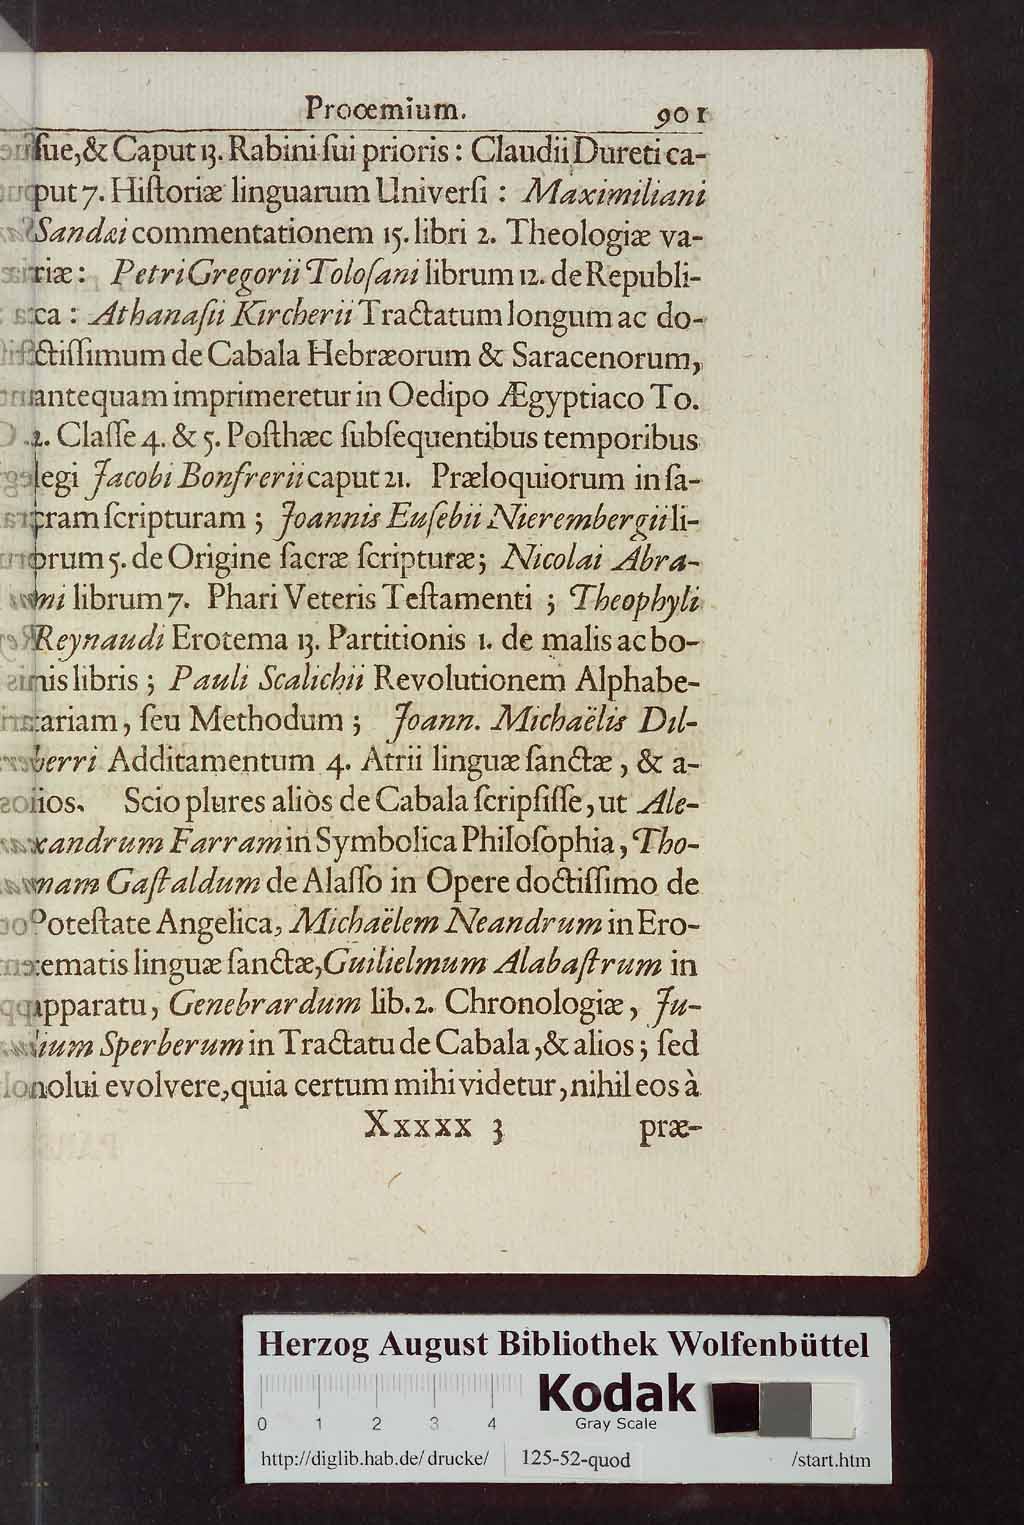 Prooemium. 901
ſue,& Caput 13. Rabini ſui prioris : Claudii Dureti ca-
put 7. Hiſtoriæ linguarum Univerſi : Maximiliani
Sandæi commentationem 15. libri 2. Theologiæ va-
riæ : Petri Gregorii Toloſani librum 12. de Republi-
ca : Athanaſii Kircherii Tractatum longum ac do-
ctiſſimum de Cabala Hebræorum & Saracenorum,
antequam imprimeretur in Oedipo Ægyptiaco To.
2. Claſſe 4. & 5. Poſthæc ſubſequentibus temporibus
legi Jacobi Bonfrerii caput 21. Præloquiorum in ſa-
cram ſcripturam ; Joannis Euſebii Nierembergii li-
brum 5. de Origine ſacræ ſcripturæ; Nicolai Abra-
mi librum 7. Phari Veteris Teſtamenti ; Theophyli
Reynaudi Erotema 13. Partitionis 1. de malis ac bo-
nis libris ; Pauli Scalichii Revolutionem Alphabe-
tariam, ſeu Methodum ; Joann. Michaëlis Dil-
herri Additamentum 4. Atrii linguæ ſanctæ, & a-
lios. Scio plures aliòs de Cabala ſcripſiſſe, ut Ale-
xandrum Farram in Symbolica Philoſophia, Tho-
mam Gaſtaldum de Alaſſo in Opere doctiſſimo de
Poteſtate Angelica, Michaëlem Neandrum in Ero-
tematis linguæ ſanctæ, Guilielmum Alabaſtrum in
apparatu, Genebrardum lib. 2. Chronologiæ, Ju-
lium Sperberum in Tractatu de Cabala ,& alios ; ſed
nolui evolvere, quia certum mihi videtur, nihil eos à
Xxxxx 3 præ-
Herzog August Bibliothek Wolfenbüttel
Kodak
0 1 2 3 4 Gray Scale
http://diglib.hab.de/drucke/ 125-52-quod /start.htm